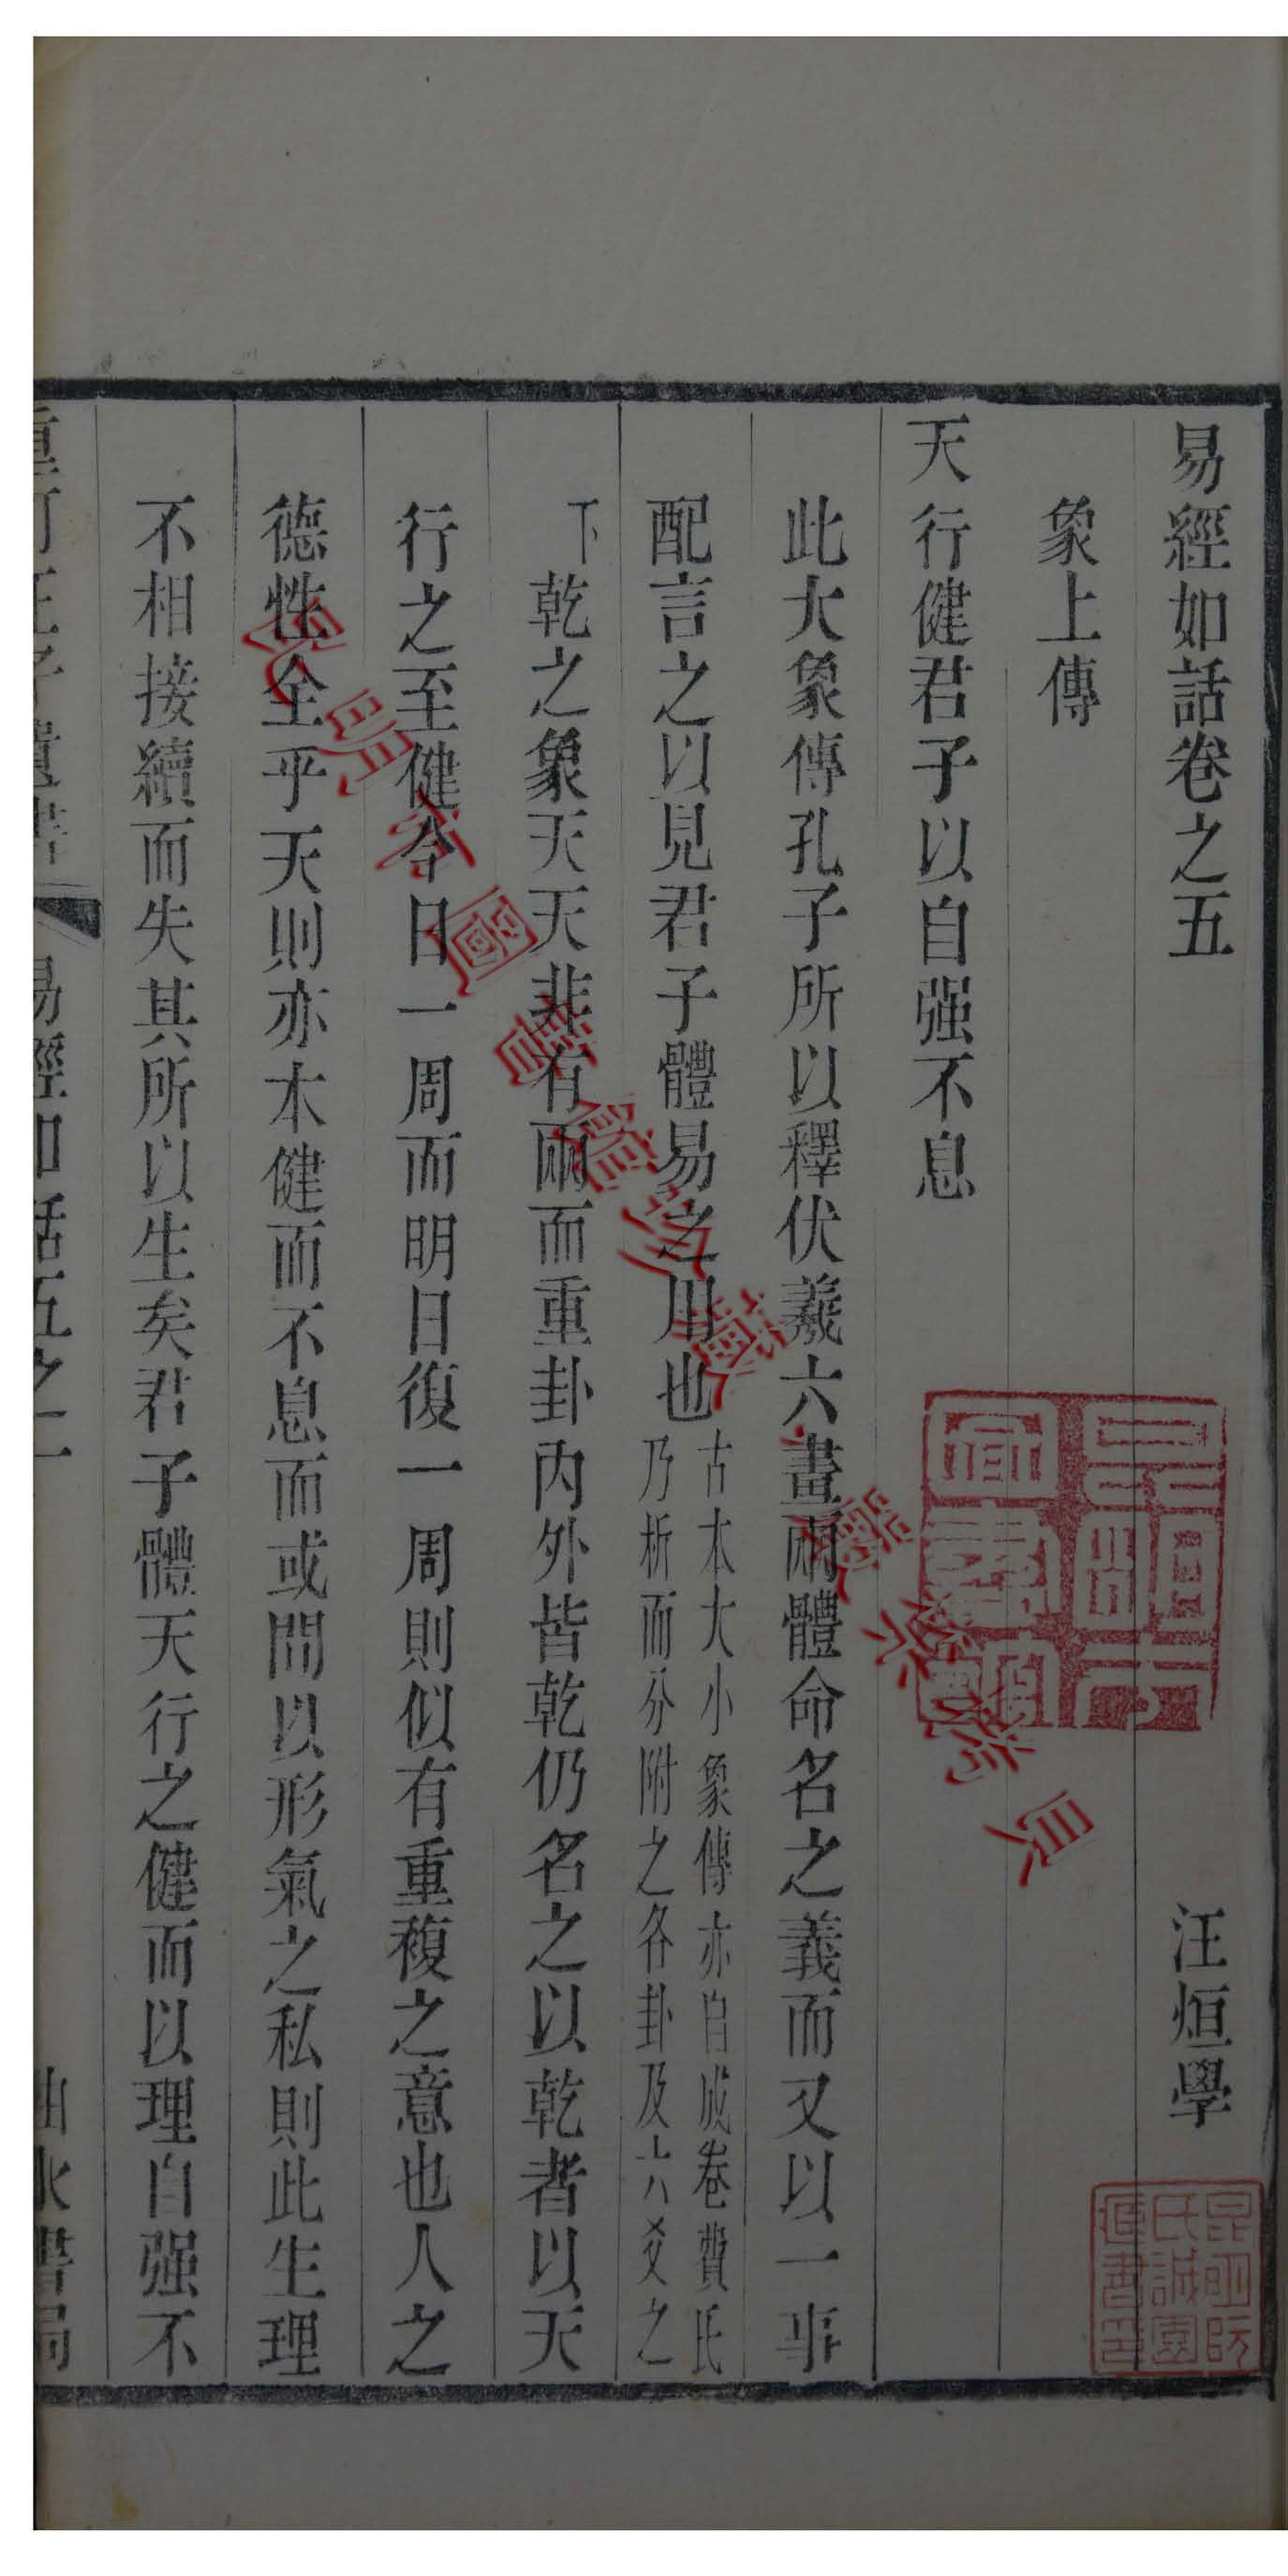 易經如話卷之五
汪烜學
象上傳
天行健君子以自强不息
此大象傳孔子所以釋伏羲六畫兩體命名之義而又以一事
配言之以見君子體易之用也
古本大小象傳亦自成卷費氏
乃析而分附之各卦及六爻之
下
乾之象天天非有兩而重卦內外皆乾仍名之以乾者以天
行之至健今日一周而明日復一周則似有重複之意也人之
德性全乎天則亦本健而不息而或間以形氣之私則此生理
不相接續而失其所以生矣君子體天行之健而以理自强不
易經如話五之一
昆明市圖書館珍藏
嚴禁拷貝
昆明市圖書館
昆明阮氏誠園臧書印